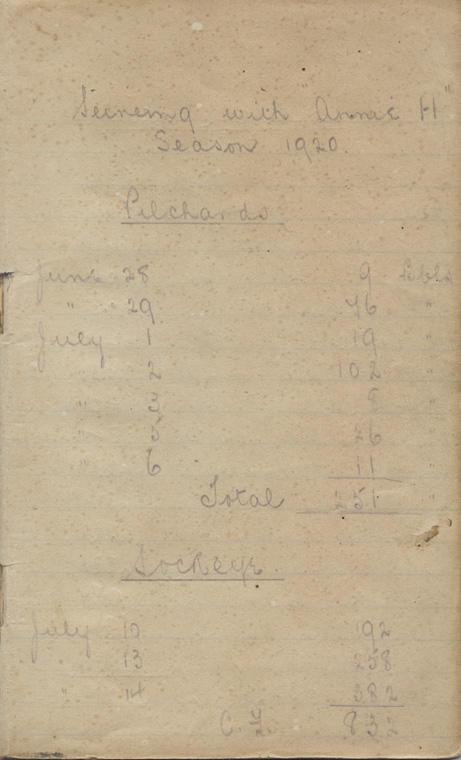 Seinening with "Annie H"
Season 1920.
Pilchards
June 28 9 bbls
" 29 76 "
July 1 19 "
" 2 102 "
" 3 8 "
" 5 26 "
" 6 11 "
Total 251 "
Sockeye.
July 10 192
" 13 258
" 14 382
C. F. 832